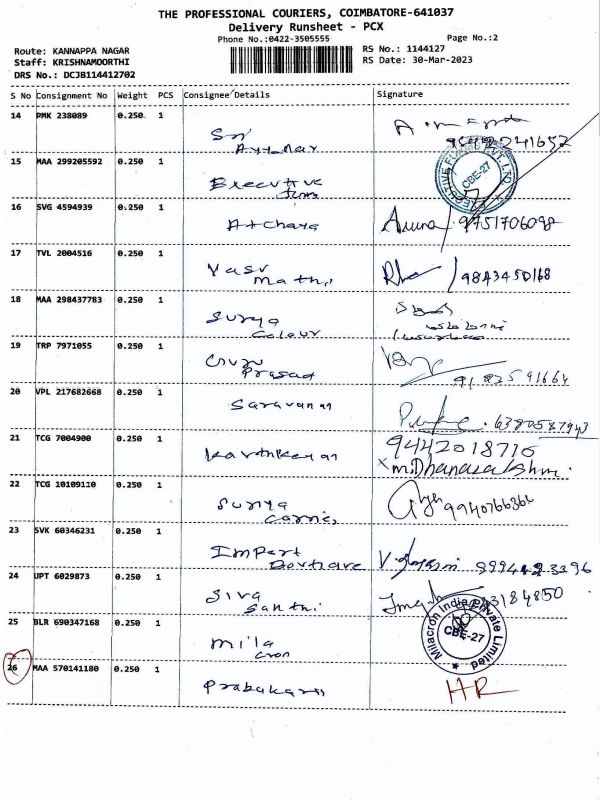 THE PROFESSIONAL COURIERS, COIMBATORE-641037
Delivery Runsheet - PCX
Phone No.:0422-3505555
Page No.:2
Route: KANNAPPA NAGAR
Staff: KRISHNAMOORTHI
DRS No.: DCJB114412702
RS No.: 1144127
RS Date: 30-Mar-2023
S No Consignment No Weight PCS Consignee Details Signature
14 PMK 238089 0.250 1
Sri
15 MAA 299205592 0.250 1
Executive
CBE-27
16 SVG 4594939 0.250 1
Atchaya Aruna 9751706098
17 TVL 2004516 0.250 1
Vasu
Mathi 9843450168
18 MAA 298437783 0.250 1
Surya
Colour
19 TRP 7971055 0.250 1
Guru
Prasad
20 VPL 217682668 0.250 1
Saravanan
21 TCG 7004900 0.250 1
9442018710
Karthikeyan x M. Dhanalakshmi.
22 TCG 10109110 0.250 1
Surya 9940766366
23 SVK 60346231 0.250 1
Impart
24 UPT 6029873 0.250 1
Siva
Santhi
25 BLR 690347168 0.250 1
Mila
cron
Milacron India Private Limited
CBE-27
26 MAA 570141180 0.250 1
Prabakaran HR